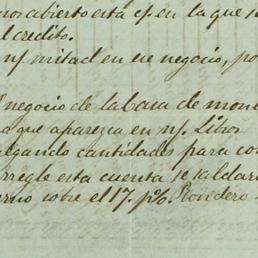 nos abierto esta c/ en la que s
l credito.
n/ mitad en ese negocio, po
l negocio de la Casa de mone
a que aparezca en n/. Libros
egando cantidades para con
rregle esta cuenta se saldar
erno sobre el 17. p% Rondero